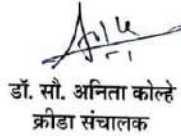 डॉ. सौ. अनिता कोल्हे
क्रीडा संचालक